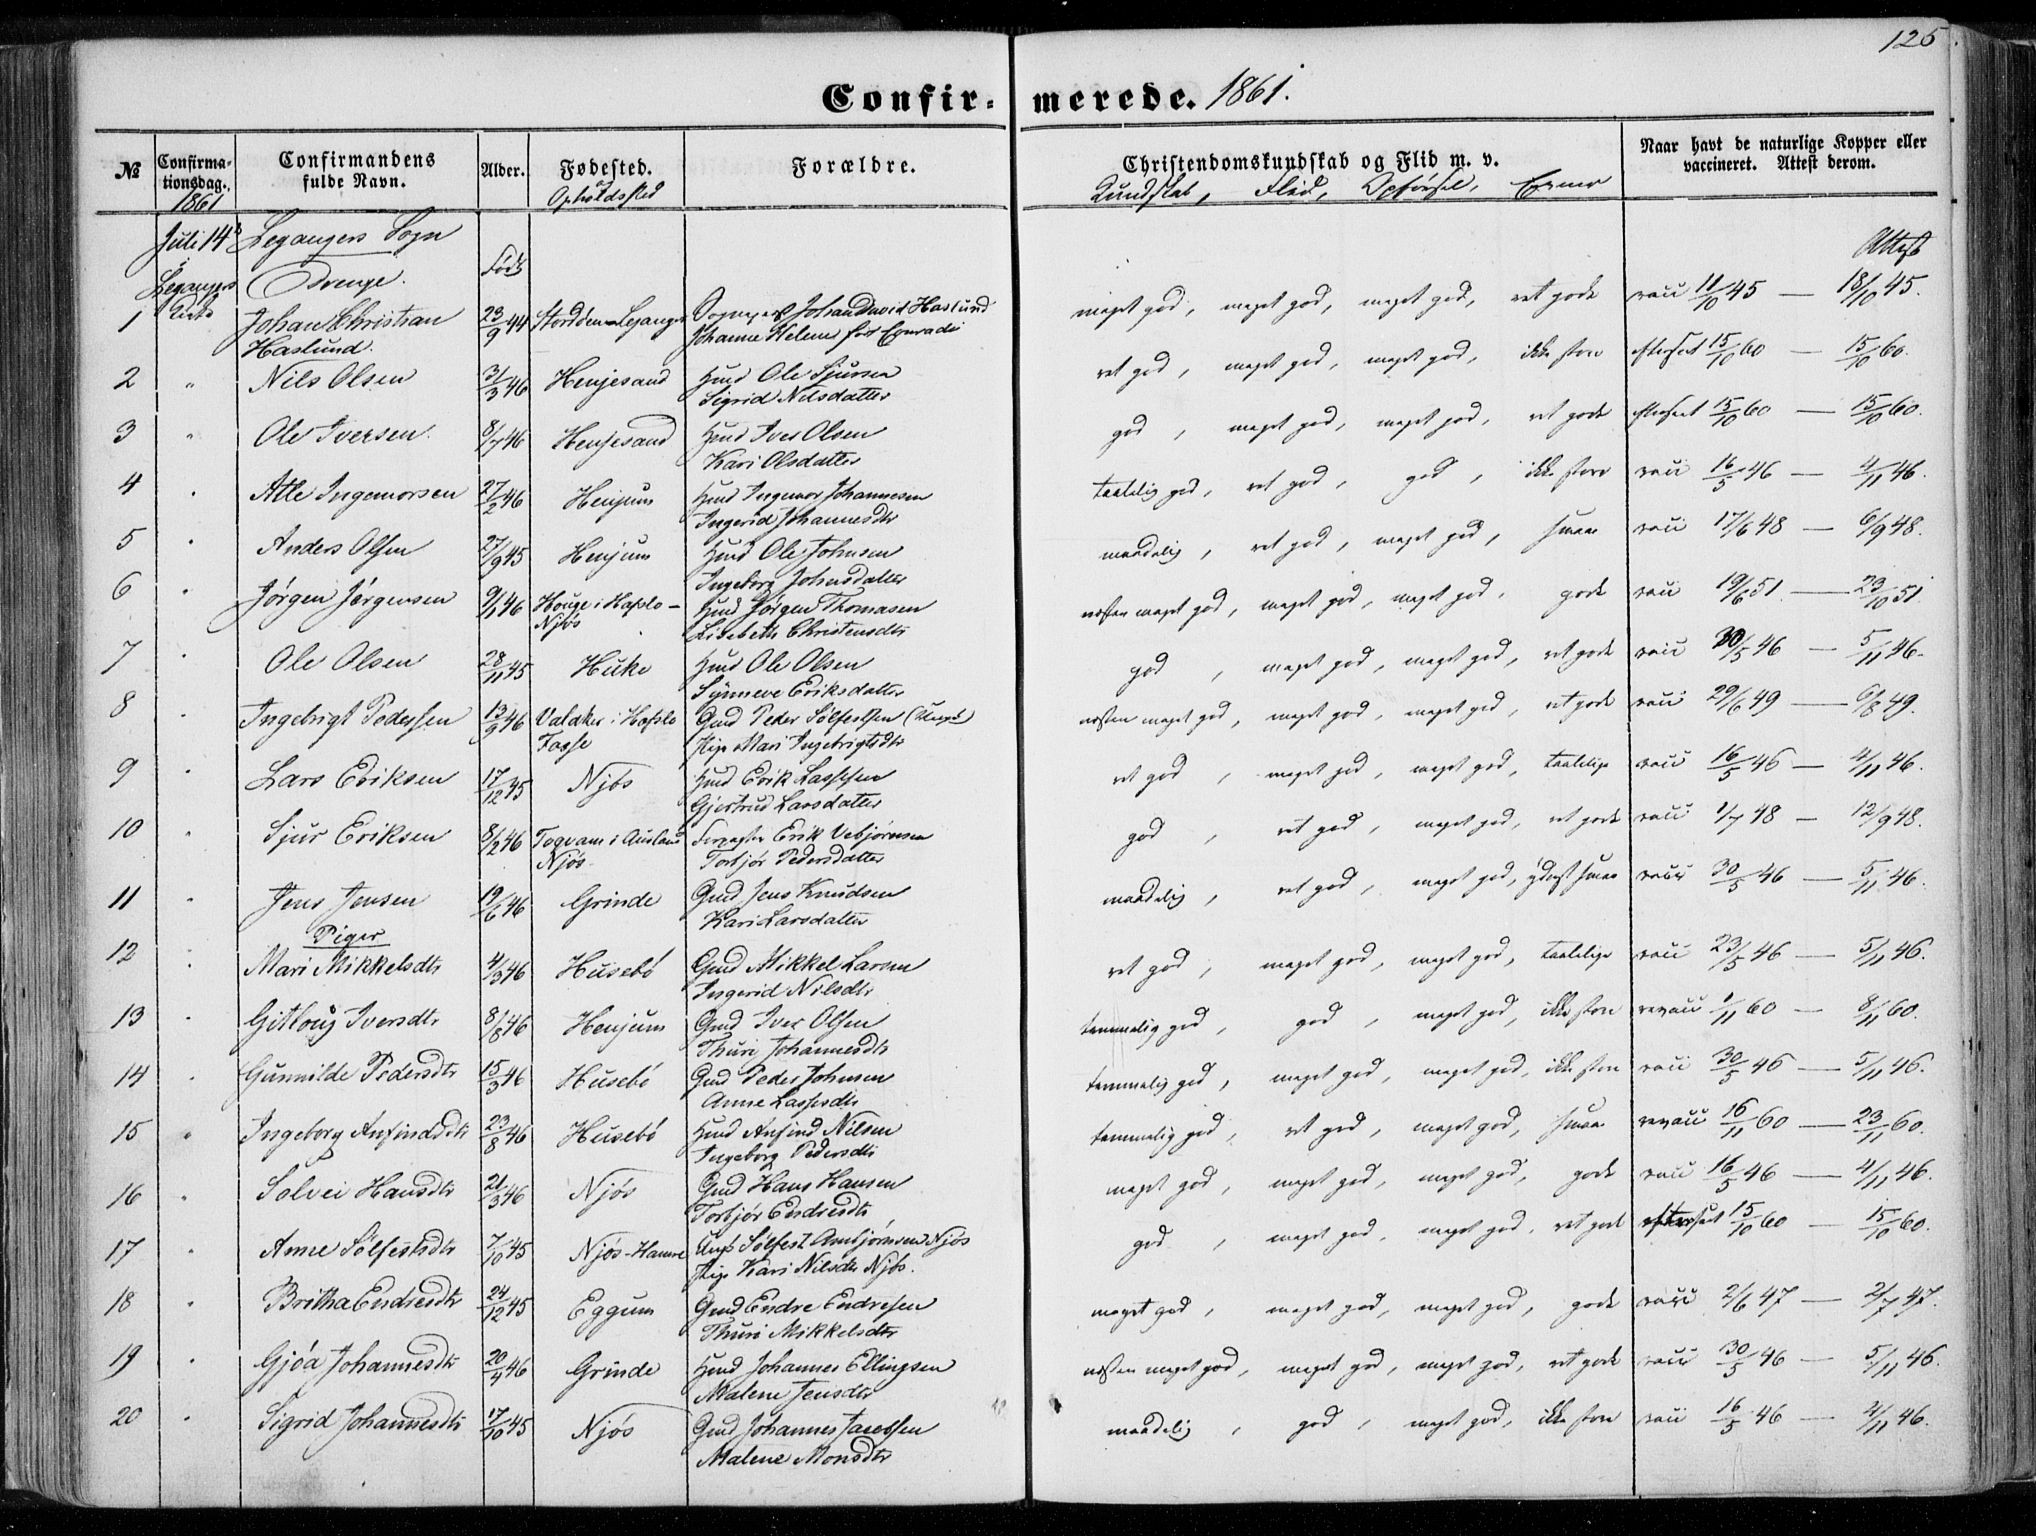 125
Confirmerede. 1861.
№ Confirmationsdag. Confirmandens fulde Navn. Alder. Fødested. Forældre. Christendomskundskab og Flid m. v. Naar havt de naturlige Kopper eller vaccineret. Attest derom.
1861 Opholdssted Kundskab, Flid, Opførsel, Evner
Juli 14de Leganger Sogn Attest
Legangers Kirke Drenge. Født
1 Johan Christian Haslund. 23/9 44 Leganger Johan David Haslund meget god, meget god, meget god, ret gode vacc 11/10 45 — 18/10 45.
Johanne Helene født Conradi
2 " Nils Olsen 31/3 46 Henjesand Hmd Ole Sjursen ret god, meget god, meget god, ikke store 15/10 60 — 15/10 60.
Sigrid Nilsdatter
3 " Ole Iversen. 8/7 46 Henjesand Hmd Iver Olsen god, meget god, meget god, ret gode 15/10 60 — 15/10 60.
Kari Olsdatter
4 " Atle Ingemorsen 27/2 46 Henjum Hmd Ingemor Johannesen taalelig god, ret god, god, ikke store vacc 16/5 46 — 4/11 46.
Ingerid Johannesdtr
5 " Anders Olsen 27/9 45 Henjum Hmd Ole Johnsen maadelig, ret god, meget god, smaa vacc 17/6 48 — 6/9 48.
Ingeborg Johnsdatter
6 " Jørgen Jørgensen 9/1 46 Houge i Hafslo – Njøs Hmd Jørgen Thomasen næsten meget god, meget god, meget god, gode vacc 19/6 51 — 23/10 51
Lisebeth Christensdtr
7 " Ole Olsen 28/11 45 Huke Hmd Ole Olsen god, meget god, meget god, ret gode vacc 30/5 46 — 5/11 46.
Synneve Eriksdatter
8 " Ingebrigt Pedersen 13/9 46 Valaker i Hafslo Fosse Gmd Peder Sølfestsen næsten meget god, meget god, meget god, ret gode vacc 29/6 49 — 6/8 49.
Pige Mari Ingebrigtsdtr
9 " Lars Eriksen 17/12 45 Njøs Hmd Erik Lassesen ret god, meget god, meget god, taalelige vacc 16/5 46 — 4/11 46.
Gjertrud Larsdatter
10 " Sjur Eriksen 8/2 46 i Aurland Njøs. Forpagter Erik Vebjørnsen god, ret god, meget god, ret gode vacc 1/7 48 — 12/9 48.
Torbjør Pedersdatter
11 " Jens Jensen 19/6 46 Grinde Gmd Jens Knudsen maadelig, ret god, meget god, yderst smaa vacc 30/5 46 — 5/11 46.
Kari Larsdatter
Piger
12 " Mari Mikkelsdtr 4/3 46 Husebø Gmd Mikkel Larsen ret god, meget god, meget god, taalelige vacc 23/5 46 — 5/11 46.
Ingerid Nilsdtr
13 " Gitloug Iversdtr 8/8 46 Henjum Gmd Iver Olsen temmelig god, god, meget god, ikke store revacc 1/11 60 — 8/11 60.
Thuri Johannesdtr
14 " Gunnilde Pedersdtr 15/3 46 Husebø Gmd Peder Johnsen temmelig god, meget god, meget god, ikke store vacc 30/5 46 — 5/11 46.
Anne Lassesdtr
15 " Ingeborg Anfindsdtr 23/8 46 Husebø Hmd Anfind Nilsen temmelig god, ret god, meget god, smaa revacc 16/11 60 — 23/11 60.
Ingeborg Pedersdtr
16 " Solvei Hansdtr 21/3 46 Njøs Gmd Hans Hansen meget god, meget god, meget god, gode vacc 16/5 46 — 4/11 46.
Torbjør Endresdtr
17 " Anne Sølfestsdtr 7/10 45 Njøs-Hamre Ungk Sølfest Arnbjørnsen Njøs god, meget god, meget god, ret gode 15/10 60 — 15/10 60.
Pige Kari Nilsdtr Njøs.
18 " Britha Endresdtr 24/12 45 Eggum Gmd Endre Endresen meget god, meget god, meget god, gode vacc 2/6 47 — 2/7 47.
Thuri Mikkelsdtr
19 " Gjøa Johannesdtr 20/4 46 Grinde Hmd Johannes Ellingsen næsten meget god, meget god, meget god, ret gode vacc 30/5 46 — 5/11 46.
Malene Jensdtr
20 " Sigrid Johannesdtr 17/10 45 Njøs Gmd Johannes Jacobsen maadelig, god, meget god, ikke store vacc 16/5 46 — 4/11 46.
Malene Monsdtr